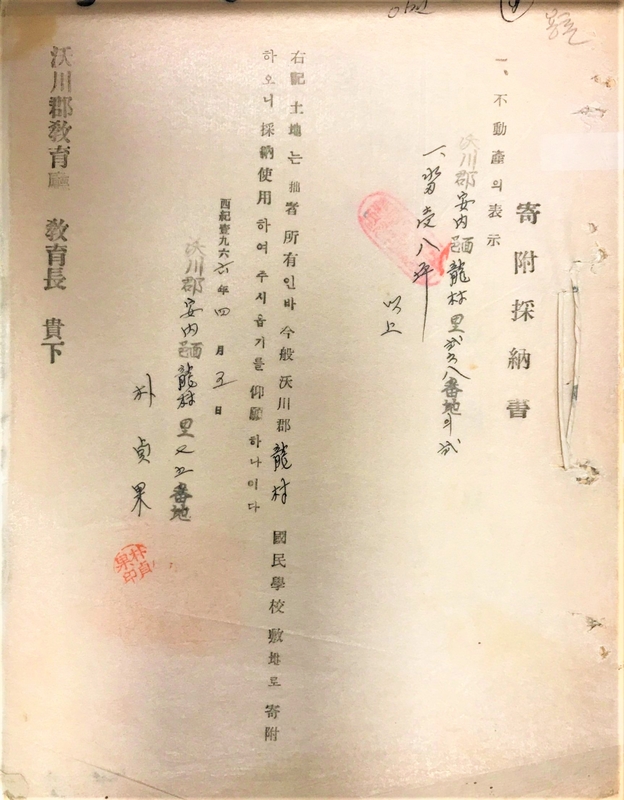 寄附採納書
一、不動產의表示
沃川郡安内面龍村里弐弐八番地의弐
一、畓壱八坪
以上
右記土地는拙者所有인바今般沃川郡龍村國民學校敷地로寄附
하오니採納使用하여주시옵기를仰願하나이다
西紀壹九六六年四月五日
沃川郡安内面龍村里又五番地
朴貞果
朴貞果印
沃川郡敎育廳 敎育長 貴下